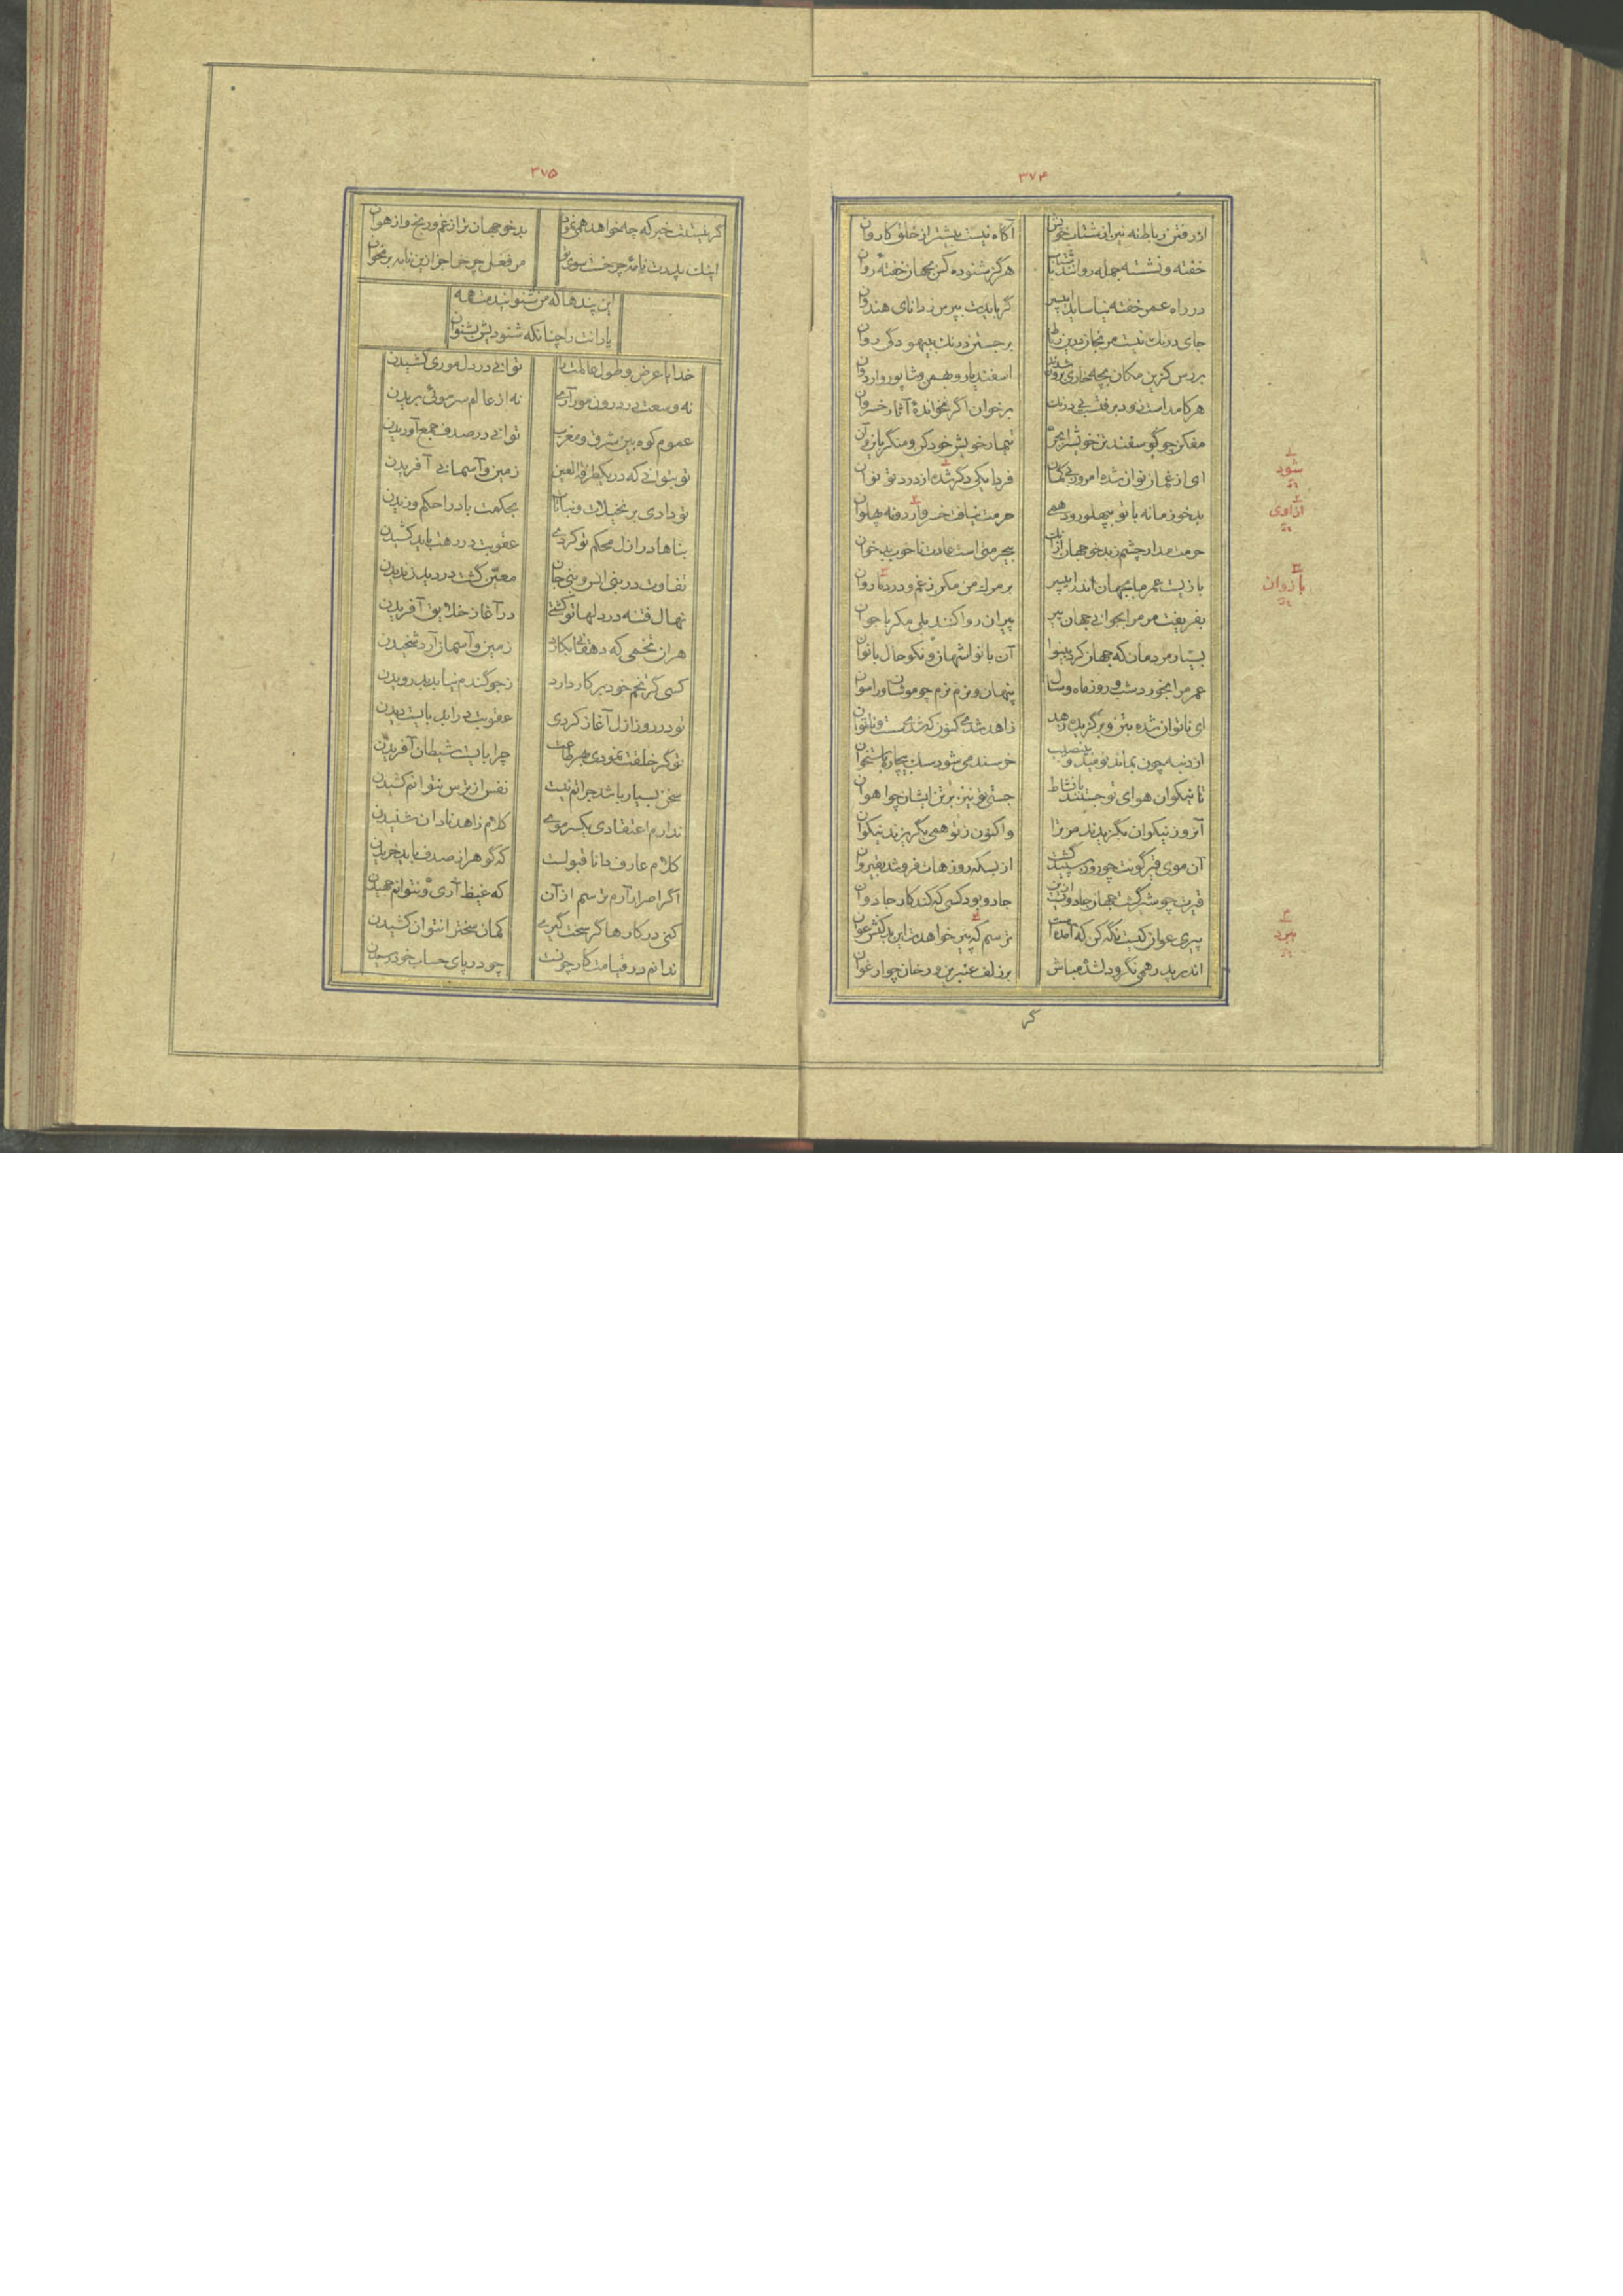 ۳۷۴
از رفتن رباط نه نیز از شتاب خویش آگاه نیست بیشتر از خلق کاروان
خفته و نشسته جمله روانند با شتاب هرگز شنوده کس بجهان خفته روان
در راه عمر خفته نیاساید ای پسر گر بایدت بپرس ز دانای هندوان
جای درنگ نیست مرنجان درین رباط برجستن درنگ بیهودگی روان
بررس کزین مکان بچه خواری برون شدند اسفندیار و بهمن و شاپور و اردوان
هر کامد اندرو برفت بی درنگ برخوان اگر نخوانده آثار خسروان
مفکن چو گوسفند تن خویش را بحرص تیمار خویش خود کن و منگر باین و آن
ای از غمان نوان شده امروز بی گمان فردا یکی دگر شده از درد تو نوان
بدخو زمانه با تو بپهلو رود همی حرمت نیافت خسرو از و نه پهلوان
حرمت مدار چشم ز بدخو جهان از آنک بیحرمتی است عادت ناخوب بدخوان
بازیست عمر ما بجهان اندر ای پسر بر مرگ من مکن ز غم و درد ناروان
بفریفت مر مرا بجوانی جهان پیر پیران روا کنند بلی مکر با جوان
بسیار مردمان که جهان کرد بینوا آن با نوا شهان و نکوحال بانوان
عمر مرا بخورد شب و روز و ماه و سال پنهان و نرم نرم چو موشان و راسوان
ای ناتوان شده بتن و برگزیده زهد زاهد شدی کنون که شدی سست و ناتوان
از دنبه چون بماند نومید و بی نصیب خرسند می شود سگ بیچاره باستخوان
تا نیکوان هوای تو جستند با نشاط جستی تو نیز برتن ایشان چو آهوان
آنروز نیکوان بگزیدند مر ترا واکنون ز تو همی بگریزند نیکوان
آن موی قیرگونت چو روز سپید گشت از بسکه روزهات فروشد بقیروان
قیرت چو شیر گشت جهان جادوئیست ازین جادو بود کسی که کند کار جادوان
پیری عوان کیست نگه کن که آمده است ترسم که پیر خواهدت این بدکنش عوان
اندر پدر همی نگر و دلشده مباش بر زلف عنبرین و رخان چو ارغوان
گر
۱
شود
۲
از اوی
۳
بازوان
۴
ببرد
۳۷۵
گر نیستت خبر که چه خواهد همی نمود بدخو جهان ترا ز غم و رنج و از هوان
اینک پدرت نامه چرخست سوی تو مر فعل چرخ را جز ازین نامه بر مخوان
این پندها که من شنوانیدمت همه
یارانت را چنانکه شنودیش بشنوان
خدایا عرض و طول عالمت را توانی در دل موری کشیدن
نه وسعت در درون مور آری نه از عالم سر موئی بریدن
عموم کوه بین شرق و مغرب توانی در صدف جمع آوریدن
تو بتوانی که در یک طرفة العین زمین و آسمانی آفریدن
تو دادی بر نخیلات و نباتات بحکمت باد را حکم وزیدن
بناها در ازل محکم تو کردی عقوبت در رهت باید کشیدن
تفاوت در بنی انس و بنی جان معین گشت در دید و ندیدن
نهال فتنه در دلها تو کشتی در آغاز خلایق آفریدن
هر آن تخمی که دهقانی بکارد زمین و آسمان آرد شخیدن
کسی گر تخم خود بر کار دارد ز جو گندم نیابد بدرویدن
تو در روز ازل آغاز کردی عقوبت در ابد بایست دیدن
تو گر خلقت نمودی بهر طاعت چرا بایست شیطان آفریدن
سخن بسیار باشد جراتم نیست نفس از ترس نتوانم کشیدن
ندارم اعتقادی یکسر موی کلام زاهد نادان شنیدن
کلام عارف دانا قبولست که گوهر از صدف باید خریدن
اگر اصرار آرم ترسم از آن که غیظ آری و نتوانم جهیدن
کنی در کارها گر سخت گیری کمان سخت را نتوان کشیدن
ندانم در قیامت کار چونست چو در پای حساب خود رسیدن